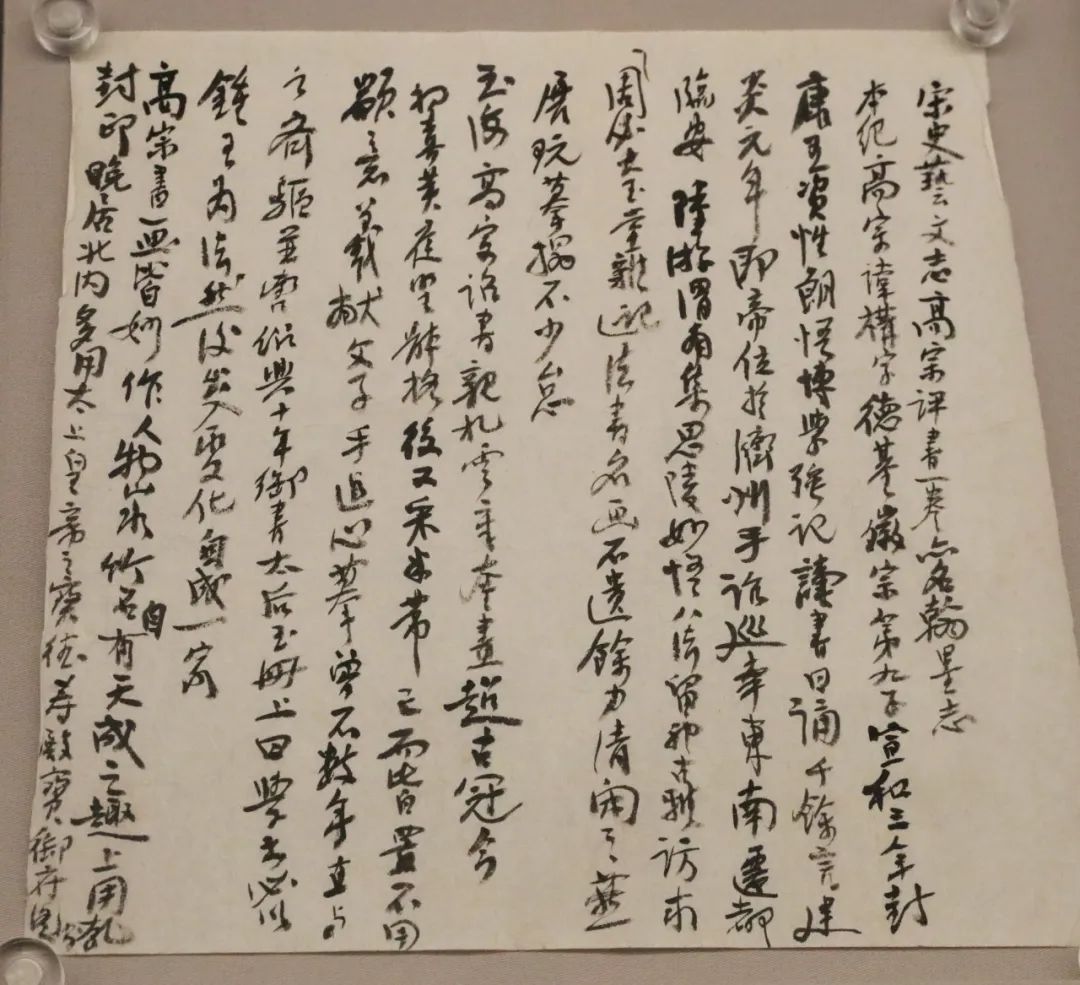 宋史藝文志高宗評書一卷亦名翰墨志
本紀高宗諱構字德基徽宗第九子宣和三年封
康王資性朗悟博學強記讀書日誦千餘言建
炎元年即帝位於濟州手詔巡幸東南遷都
臨安 陸游渭南集思陵妙悟八法留神古雅訪求
法書名画不遺餘力清閒之燕
展玩摹搨不少怠
周必大玉堂雜記
玉海高宗詔書親札雲章奎畫超古冠今
初喜黃庭堅體格後又采米芾已而皆置不用
顓意羲獻父子手追心摹曾不數年直与
之齊驅並轡紹興十年御書太后玉冊上曰學書必以
鍾王為法然後出入變化自成一家
高宗書画皆妙作人物山水竹石自有天成之趣上用乾
封印晚居北内多用太上皇帝之寶德壽殿寶御府圖